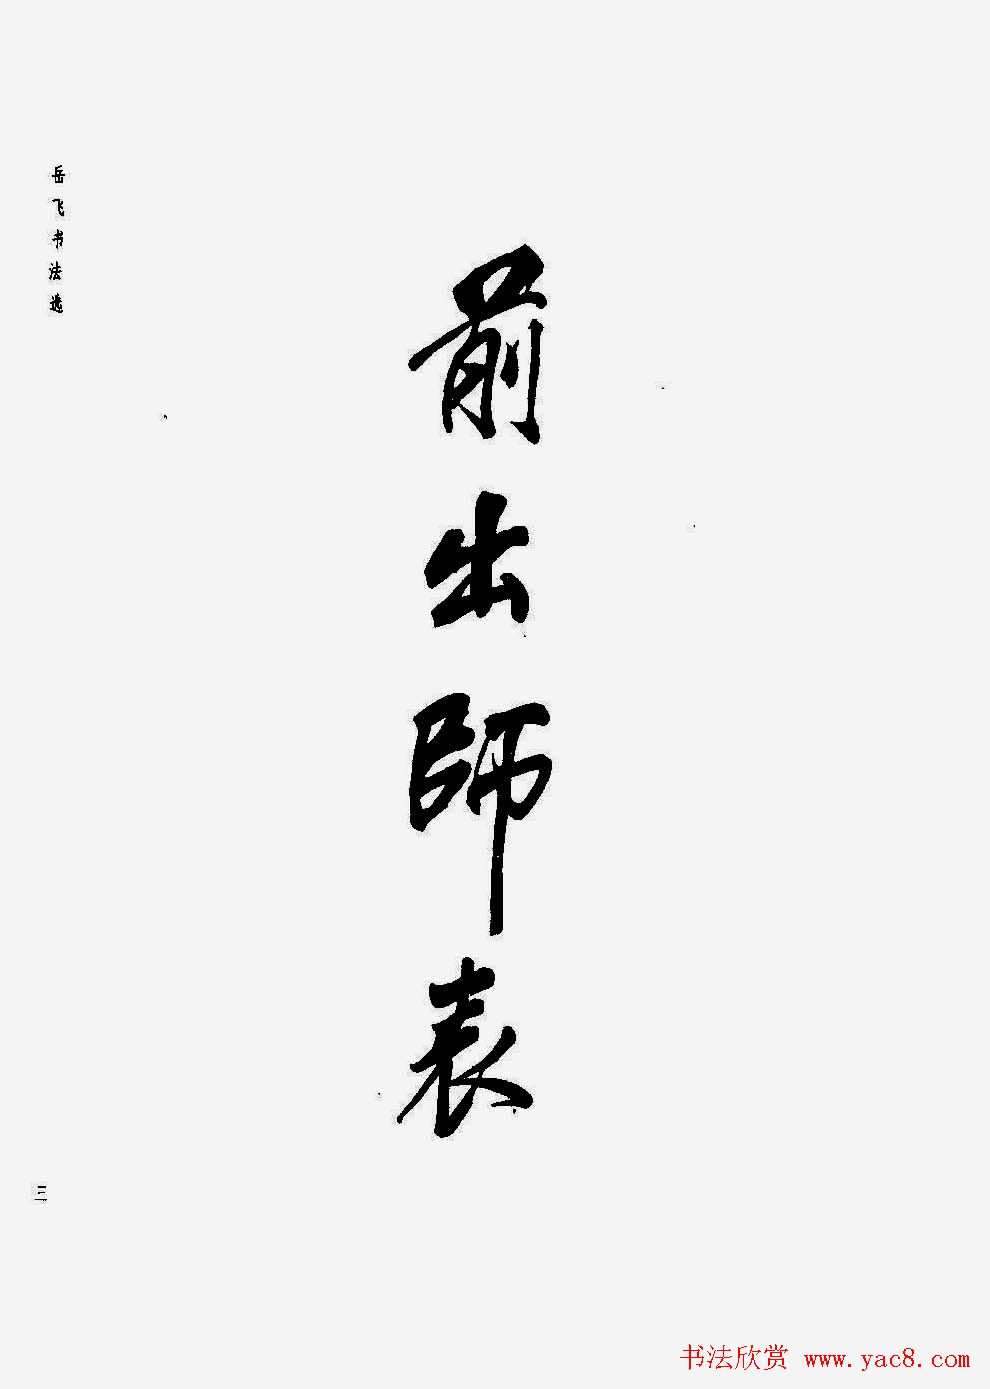 前出師表
岳飞书法选
三
书法欣赏 www.yac8.com